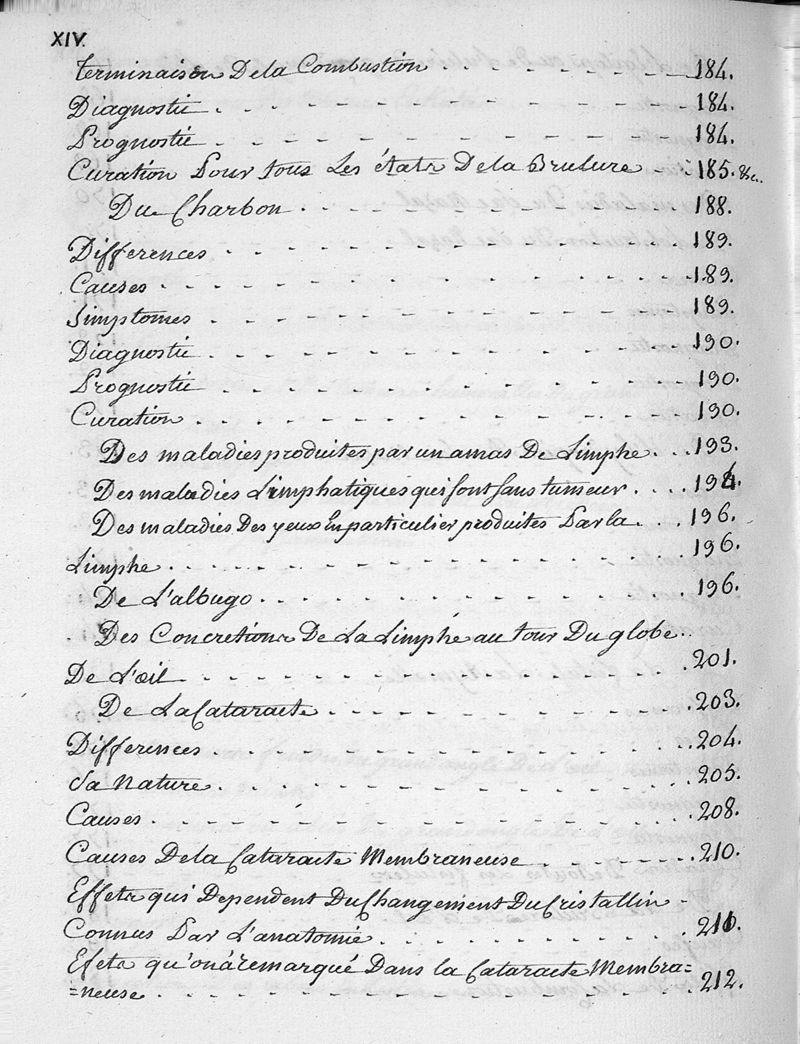 XIV.
Terminaison De la Combustion . . . . . . . . . 184.
Diagnostic . . . . . . . . . . . . . . 184.
Prognostic . . . . . . . . . . . . . . 184.
Curation Pour tous Les états De la Brulure . 185. &c.
Du Charbon . . . . . . . . . . . . 188.
Differences . . . . . . . . . . . . . . 189.
Causes . . . . . . . . . . . . . . . . 189.
Simptomes . . . . . . . . . . . . . . 189.
Diagnostic . . . . . . . . . . . . . . 190.
Prognostic . . . . . . . . . . . . . . 190.
Curation . . . . . . . . . . . . . . . 190.
Des maladies produites par un amas De Limphe . . . 193.
Des maladies Limphatiques qui sont sans tumeur . . . . 194.
Des maladies Des yeux En particulier produites Par la . . . 196.
Limphe . . . . . . . . . . . . . . . . 196.
De L'albugo . . . . . . . . . . . . . 196.
Des Concretions De La Limphe au tour Du globe . .
De L'œil . . . . . . . . . . . . . . . 201.
De La Cataracte . . . . . . . . . . . 203.
Differences . . . . . . . . . . . . . . 204.
Sa Nature . . . . . . . . . . . . . . 205.
Causes . . . . . . . . . . . . . . . . 208.
Causes De la Cataracte Membraneuse . . . . . . 210.
Effets qui Dependent Du Changement Du Cristallin -
Connus Par L'anatomie . . . . . . . . . . 210.
Efets qu'on à remarqué Dans la Cataracte Membra=
=neuse . . . . . . . . . . . . . . . . 212.